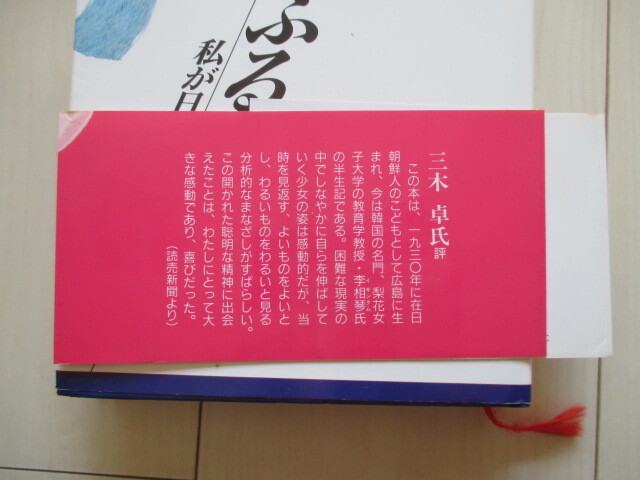 ふる
私が日
三木 卓氏評
この本は、一九三〇年に在日
朝鮮人のこどもとして広島に生
まれ、今は韓国の名門、梨花女
子大学の教育学教授・李相琴氏
イサンクム
の半生記である。困難な現実の
中でしなやかに自らを伸ばして
いく少女の姿は感動的だが、当
時を見返す、よいものをよいと
し、わるいものをわるいと見る
分析的なまなざしがすばらしい。
この開かれた聡明な精神に出会
えたことは、わたしにとって大
きな感動であり、喜びだった。
（読売新聞より）